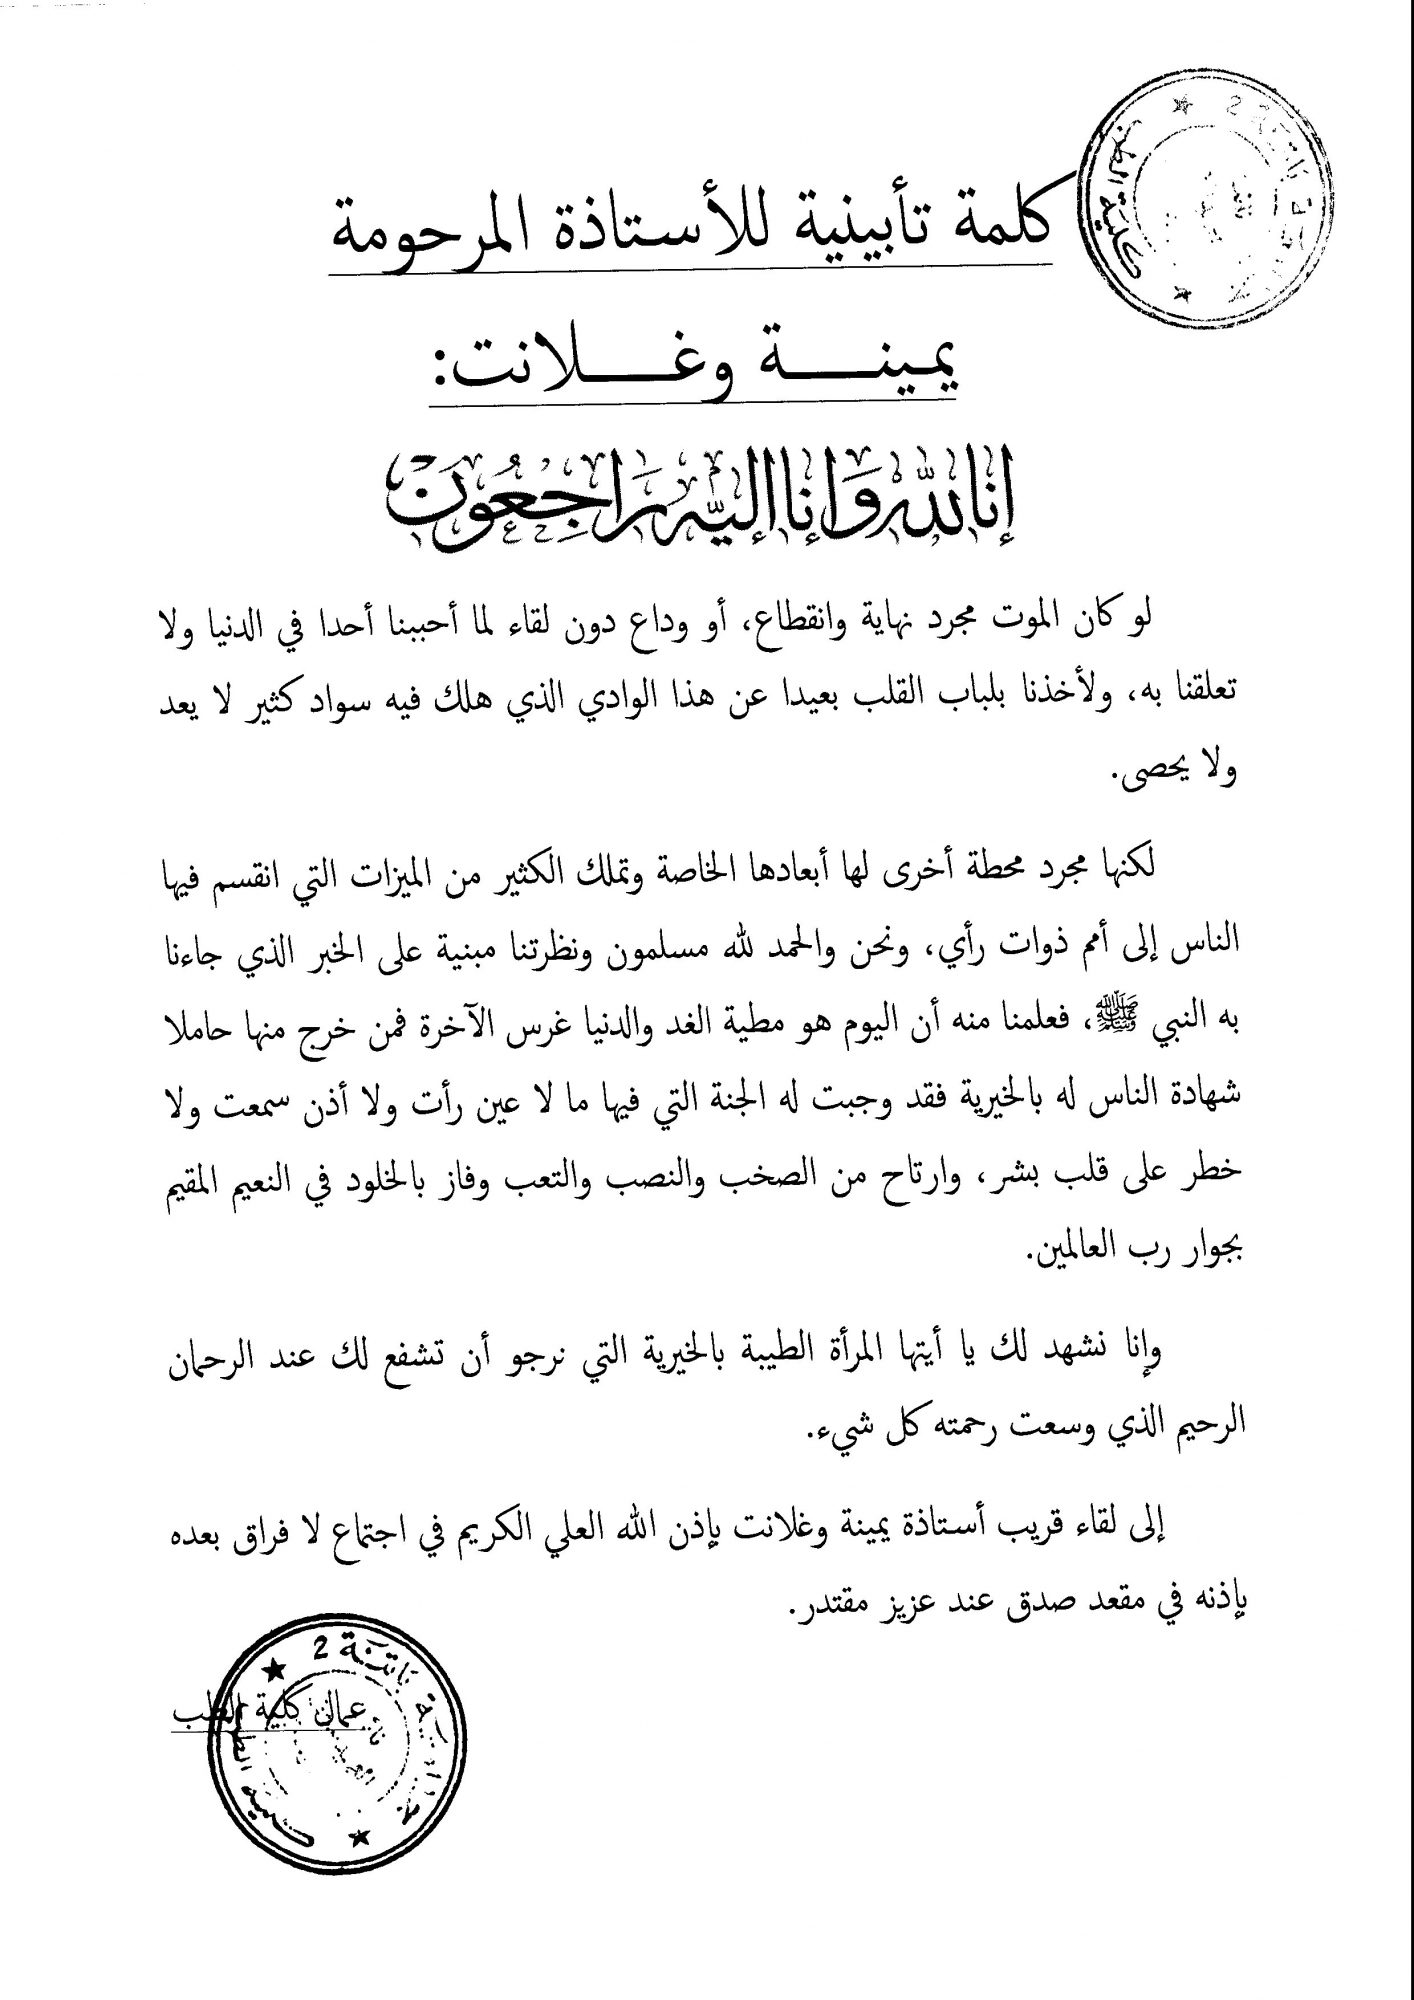 كلمة تأبينية للأستاذة المرحومة
يمينة وغلانت:
إنا لله وإنا إليه راجعون
لو كان الموت مجرد نهاية وانقطاع، أو وداع دون لقاء لما أحببنا أحدا في الدنيا ولا
تعلقنا به، ولأخذنا بلباب القلب بعيدا عن هذا الوادي الذي هلك فيه سواد كثير لا يعد
ولا يحصى.
لكنها مجرد محطة أخرى لها أبعادها الخاصة وتملك الكثير من الميزات التي انقسم فيها
الناس إلى أمم ذوات رأي، ونحن والحمد لله مسلمون ونظرتنا مبنية على الخبر الذي جاءنا
به النبي ﷺ، فعلمنا منه أن اليوم هو مطية الغد والدنيا غرس الآخرة فمن خرج منها حاملا
شهادة الناس له بالخيرية فقد وجبت له الجنة التي فيها ما لا عين رأت ولا أذن سمعت ولا
خطر على قلب بشر، وارتاح من الصخب والنصب والتعب وفاز بالخلود في النعيم المقيم
بجوار رب العالمين.
وإنا نشهد لك يا أيتها المرأة الطيبة بالخيرية التي نرجو أن تشفع لك عند الرحمان
الرحيم الذي وسعت رحمته كل شيء.
إلى لقاء قريب أستاذة يمينة وغلانت بإذن الله العلي الكريم في اجتماع لا فراق بعده
بإذنه في مقعد صدق عند عزيز مقتدر.
عمال كلية الطب
باتنة 2
كلية الطب